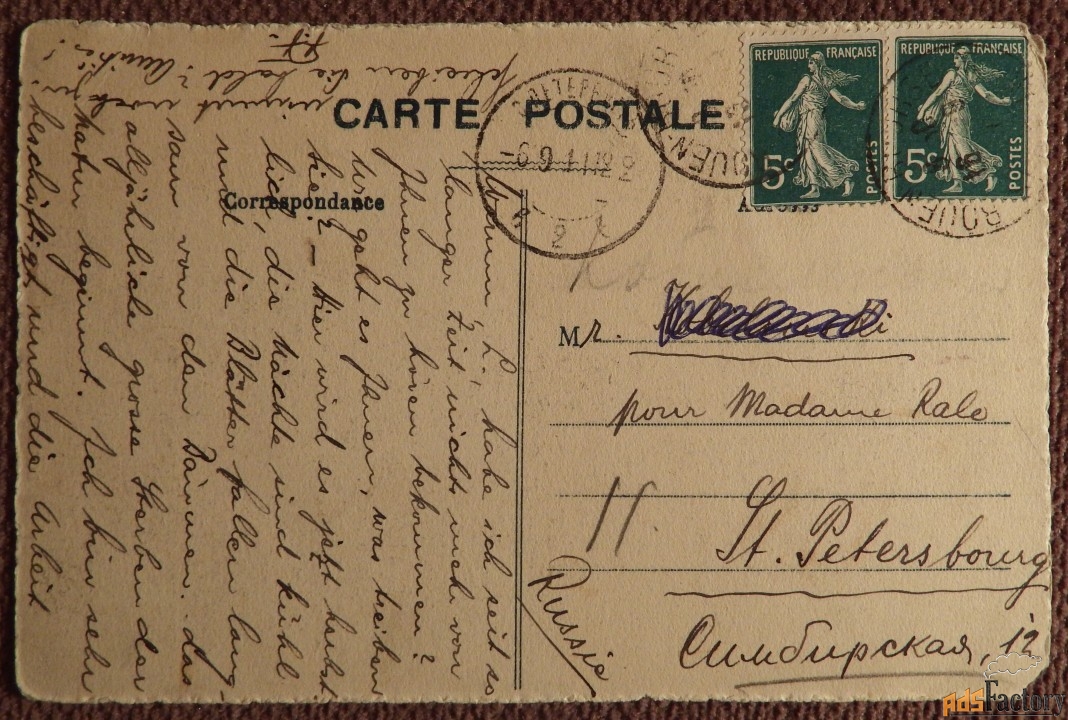 CARTE POSTALE
Correspondance
REPUBLIQUE FRANÇAISE
5c
POSTES
REPUBLIQUE FRANÇAISE
5c
POSTES
ROUEN
ROUEN
-6.9.11
Warum, L., habe ich seit so
langer Zeit nichts mehr von
Ihnen zu hören bekommen?
Wie geht es Ihnen, was treiben
Sie? – Hier wird es jetzt herbst-
lich, die Nächte sind kühl
und die Blätter fallen lang-
sam von den Bäumen. Das
alljährliche grosse Sterben der
Natur beginnt. Ich bin sehr
beschäftigt und die Arbeit
nimmt
schreiben Sie bald?
Mr.
pour Madame Rale
St. Petersbourg
Russie
Симбирская, 12
11.
AdsFactory